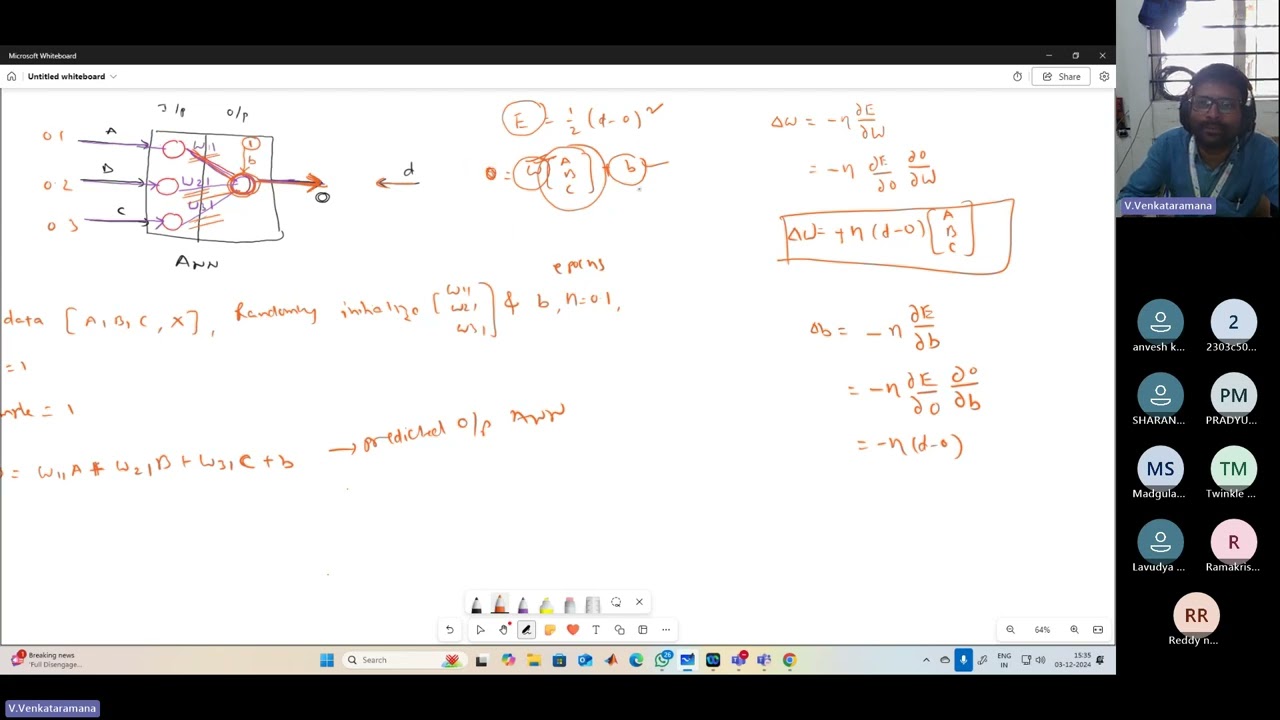 Microsoft Whiteboard
Untitled whiteboard
Share
I/p
O/p
0.1
A
W11
1
b
0.2
B
W21
0.3
C
W31
O
d
ANN
E = 1/2 (d-o)²
o = W [A B C] + b
epochs
data [A, B, C, X], Randomly initialize [W11 W21 W31] & b, η=0.1,
=1
= 1
= W11A + W21B + W31C + b → predicted O/p ANN
ΔW = -η ∂E/∂W
= -η ∂E/∂O ∂O/∂W
ΔW = +η (d-o) [A B C]
Δb = -η ∂E/∂b
= -η ∂E/∂O ∂O/∂b
= -η (d-o)
V.Venkataramana
anvesh k...
2
2303c50...
SHARAN...
PM
PRADYU...
MS
Madgula...
TM
Twinkle ...
Lavudya ...
R
Ramakris...
RR
Reddy n...
64%
1
Breaking news
'Full Disengage...
Search
26
ENG
IN
15:35
03-12-2024
V.Venkataramana